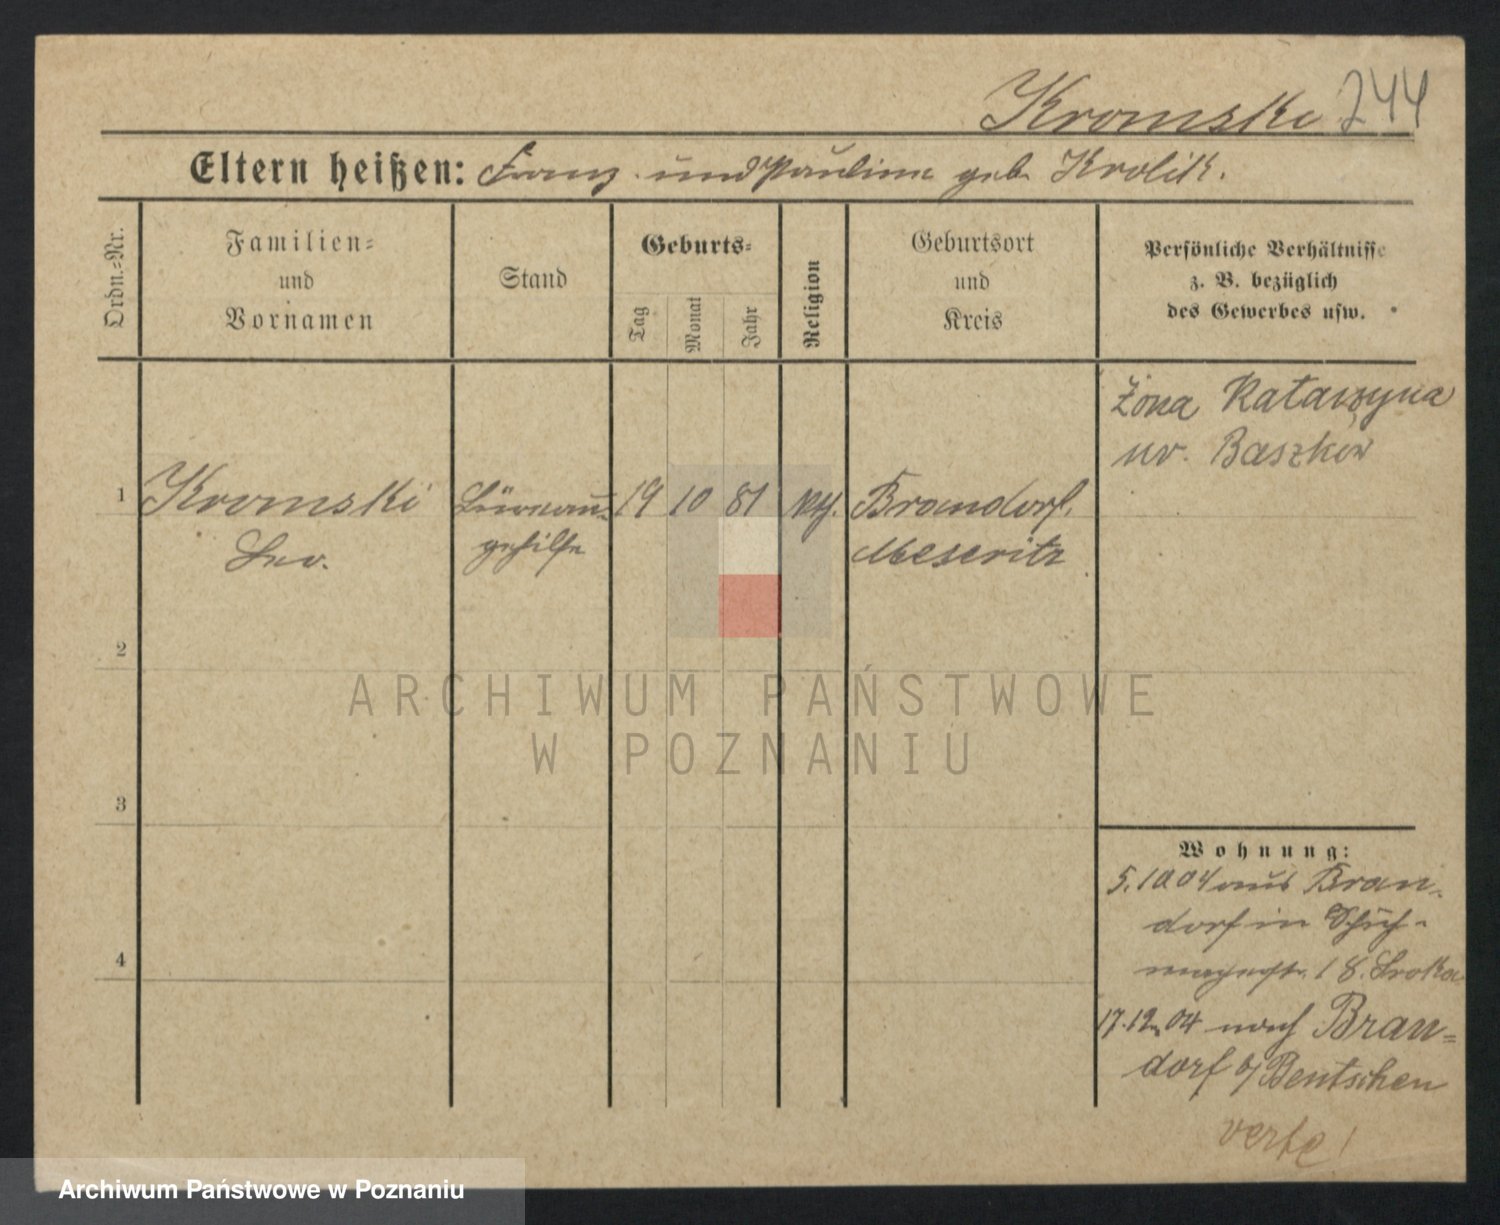 Kromski 244
Eltern heißen: Franz und Pauline geb. Krolik.
Ordn.-Nr.
Familien-
und
Vornamen
Stand
Geburts-
Tag
Monat
Jahr
Religion
Geburtsort
und
Kreis
Persönliche Verhältnisse
z. B. bezüglich
des Gewerbes usw.
Żona Katarzyna
ur. Baszków
1 Kromski
Leo.
Büreau-
gehilfe
19 10 81 kth.
Brandorf.
Meseritz
2
3
4
ARCHIWUM PAŃSTWOWE
W POZNANIU
Wohnung:
5.10 04 aus Bran-
dorf in
18. Sroka
17.12. 04 nach Bran-
dorf b/ Bentschen
verte!
Archiwum Państwowe w Poznaniu